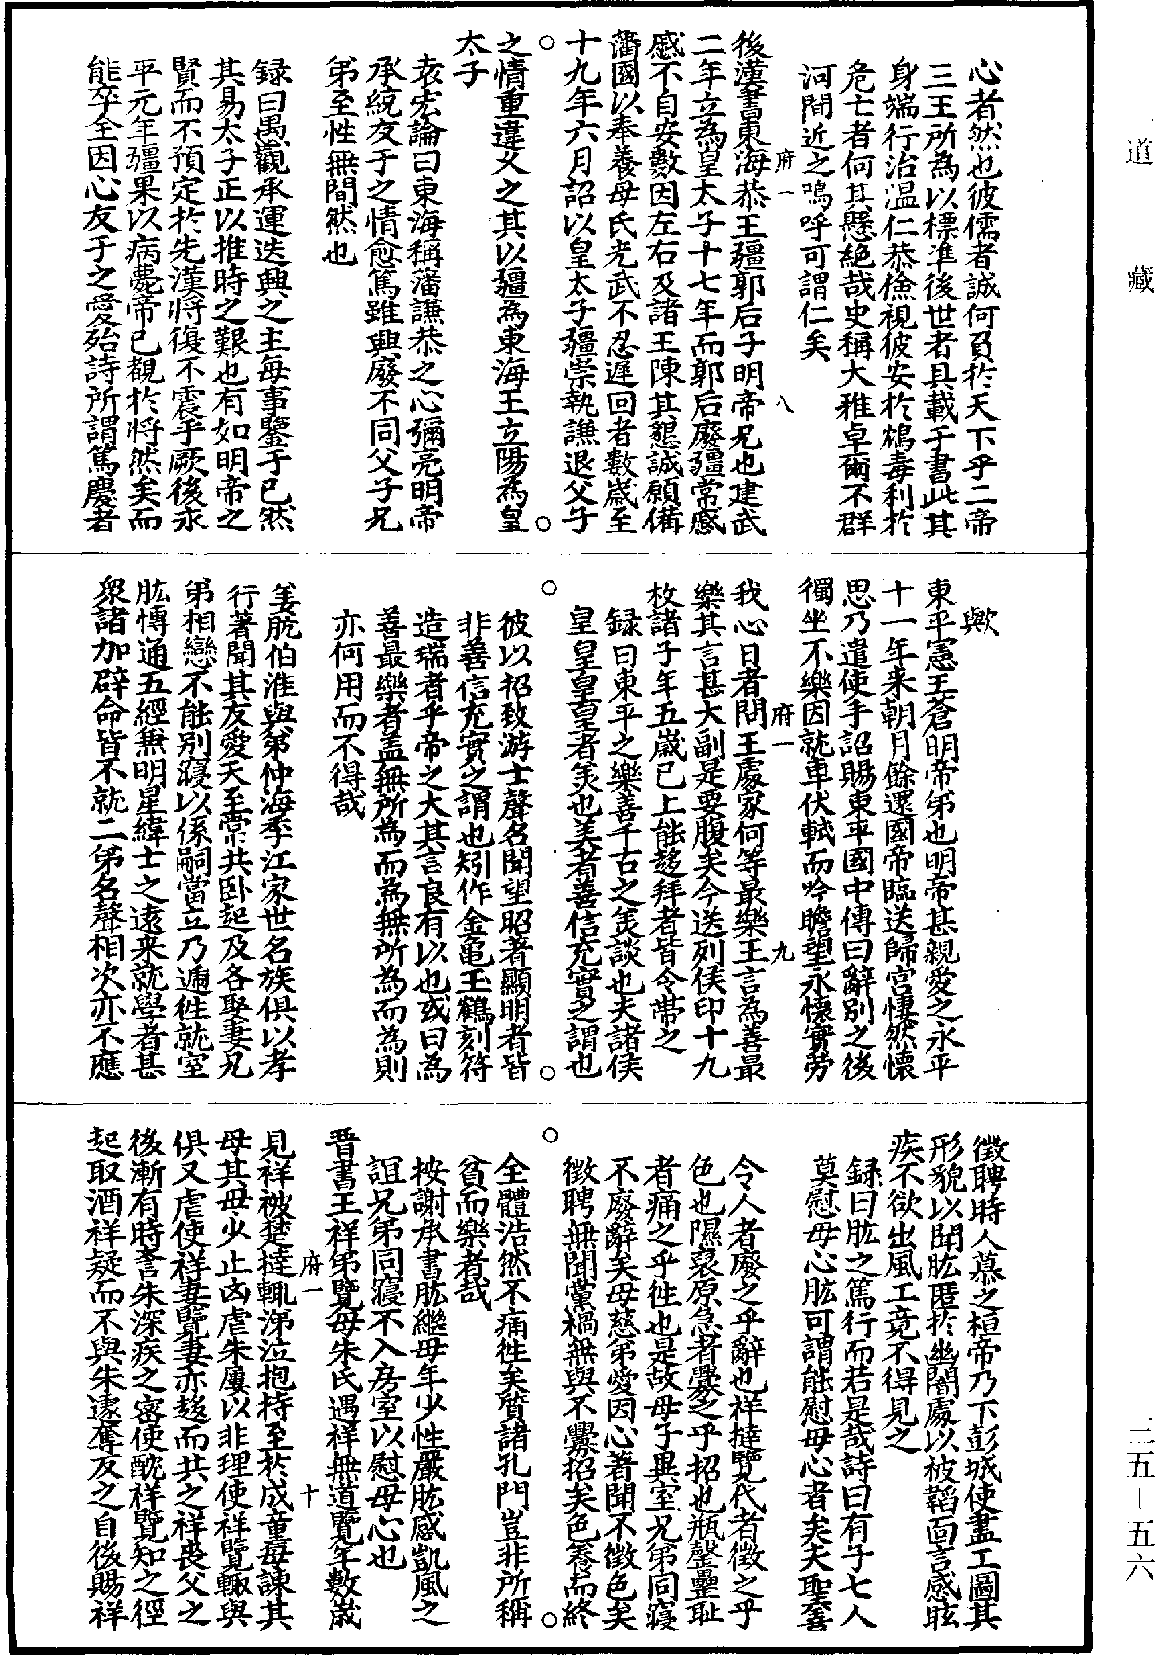 道藏
二五—五六
心者然也彼儒者誠何負於天下乎二帝
三王所為以標準後世者具載于書此其
身端行治溫仁恭儉視彼安於鴆毒利於
危亡者何其懸絕哉史稱大雅卓爾不群
河間近之嗚呼可謂仁矣
府一
八
後漢書東海恭王疆郭后子明帝兄也建武
二年立為皇太子十七年而郭后廢疆常慼
慼不自安數因左右及諸王陳其懇誠願備
藩國以奉養母氏光武不忍遲回者數歲至
十九年六月詔以皇太子疆崇執謙退父子
之情重違久之其以疆為東海王立陽為皇
太子
袁宏論曰東海稱藩謙恭之心彌亮明帝
承統友于之情愈篤雖興廢不同父子兄
弟至性無間然也
録曰愚觀承運迭興之主每事鑒于已然
其易太子正以推時之艱也有如明帝之
賢而不預定於先漢將復不震乎厥後永
平元年疆果以病薨帝已覩於將然矣而
能卒全因心友于之愛殆詩所謂篤慶者
歟
東平憲王蒼明帝弟也明帝甚親愛之永平
十一年来朝月餘還國帝臨送歸宮悽然懷
思乃遣使手詔賜東平國中傳曰辭別之後
獨坐不樂因就車伏軾而吟瞻望永懷實勞
府一
九
我心日者問王處家何等最樂王言為善最
樂其言甚大副是要腹矣今送列侯印十九
枚諸子年五歲已上能趍拜者皆令帶之
録曰東平之樂善千古之羙談也夫諸侯
皇皇皇皇者羙也美者善信充實之謂也
彼以招致游士聲名聞望昭著顯明者皆
非善信充實之謂也矧作金龜玉鶴刻符
造瑞者乎帝之大其言良有以也或曰為
善最樂者盖無所為而為無所為而為則
亦何用而不得哉
姜肱伯淮與弟仲海季江家世名族俱以孝
行著聞其友愛天至常共卧起及各娶妻兄
弟相戀不能別寢以係嗣當立乃遞徃就室
肱慱通五經兼明星緯士之遠来就學者甚
衆諸加辟命皆不就二弟名聲相次亦不應
徵聘時人慕之桓帝乃下彭城使畫工圖其
形貌以聞肱匿於幽闇處以被韜面言感眩
疾不欲出風工竟不得見之
録曰肱之篤行而若是哉詩曰有子七人
莫慰母心肱可謂能慰母心者矣夫聖善
令人者廢之乎辭也祥撻覽代者徵之乎
色也隰裒原急者釁之乎招也瓶罄罍恥
者痛之乎徃也是故母子異室兄弟同寢
不廢辭矣母慈弟愛因心著聞不徵色矣
徵聘無聞黨禍無與不釁招矣色養而終
全體浩然不痛徃矣質諸孔門豈非所稱
貧而樂者哉
按謝承書肱繼母年少性嚴肱感凱風之
誼兄弟同寢不入房室以慰母心也
府一
十
晋書王祥弟覽母朱氏遇祥無道覽年數歲
見祥被楚撻輒涕泣抱持至於成童每諫其
母其母少止凶虐朱屢以非理使祥覽輒與
俱又虐使祥妻覽妻亦趍而共之祥喪父之
後漸有時譽朱深疾之密使酖祥覽知之徑
起取酒祥疑而不與朱遽奪反之自後賜祥